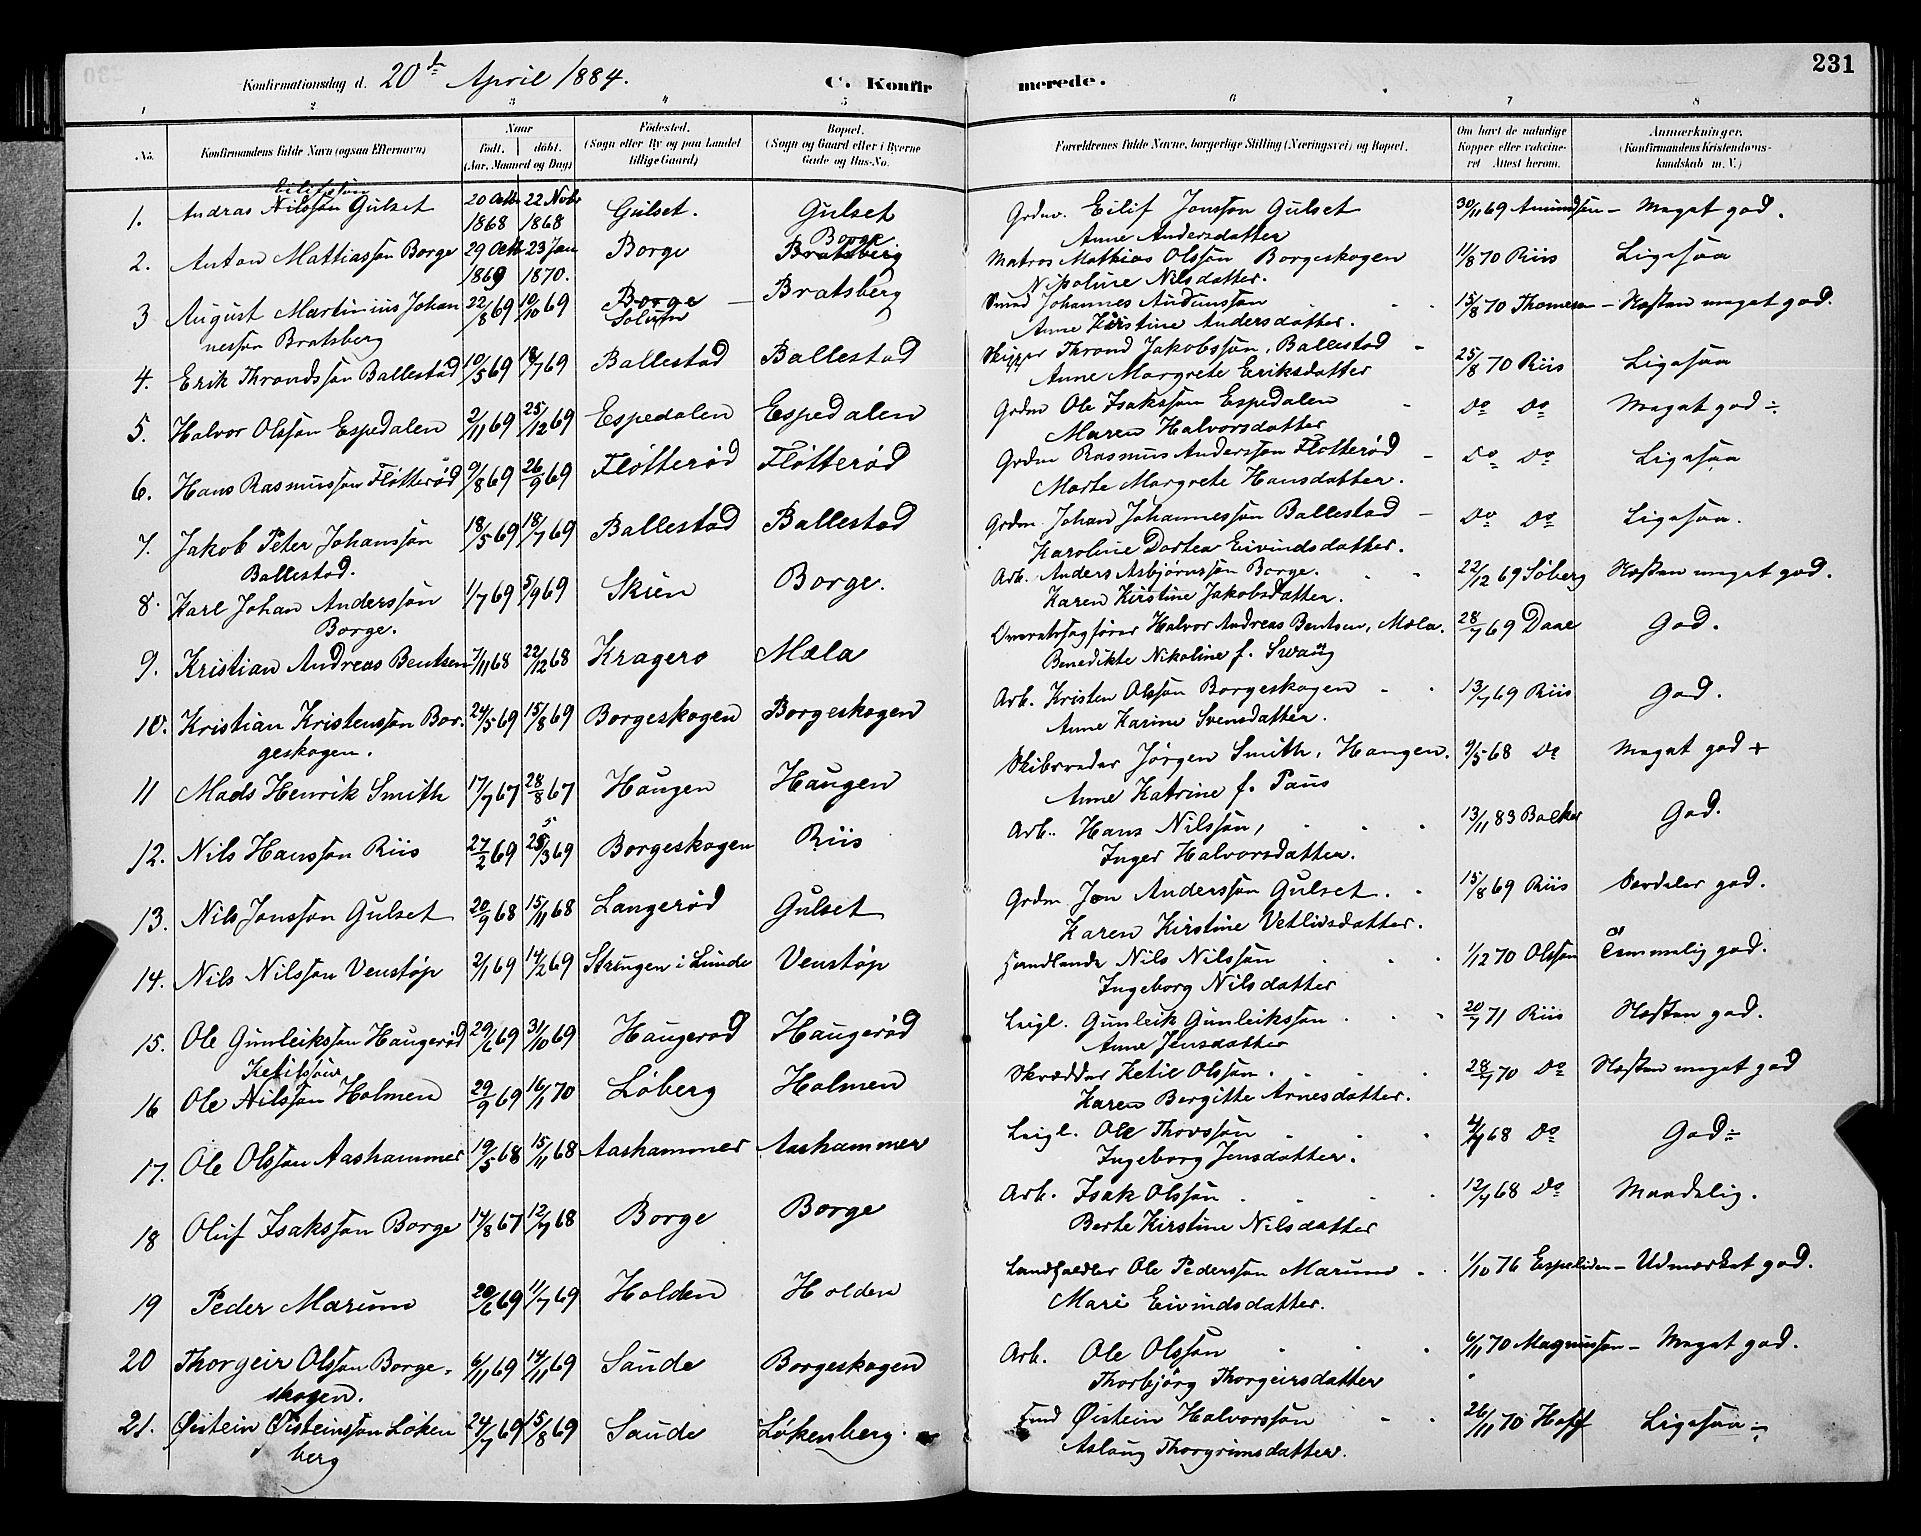 231
Konfirmationsdag d. 20de April 1884.
C. Konfirmerede.
1 2 3 4 5 6 7 8
No. Konfirmandens fulde Navn (ogsaa Efternavn) Naar födt. döbt. (Aar, Maaned og Dag) Födested. (Sogn eller By og paa Landet tillige Gaard) Bopæl. (Sogn og Gaard eller i Byerne Gade og Hus-No. Forældrenes fulde Navne, borgerlige Stilling (Næringsvei) og Bopæl. Om havt de naturlige Kopper eller vaccineret Attest herom. Anmærkninger. (Konfirmandens Kristendomskundskab m. V.)
Eilifssøn
1. Andras Nilssøn Gulset 20 Octb 1868 22 Novb 1868 Gulset. Gulset Grdm. Eilif Jonssøn Gulset 30/11 69 Amundsen – Meget god.
Anne Andersdatter
2. Anton Mattiassøn Borge 29 Octb 1869 23 Jan 1870. Borge Borge Bratsberg Matros Mathias Olssøn Borgeskogen 1/8 70 Riis Ligesaa
Nilsdatter.
3 August Martinius Johannessøn Bratsberg 22/8 69 10/10 69 Borge Solum – Bratsberg Johannes Audunssøn 15/8 70 Thomesen – Næsten meget god.
Anne Kirstine Andersdatter.
4. Erik Throndssøn Ballestad 10/5 69 18/7 69 Ballestad Ballestad Skipper Thrond Jakobssøn, Ballestad 25/8 70 Riis Ligesaa
Anne Margrete Eriksdatter
5. Halvor Olssøn Espedalen 2/11 69 25/12 69 Espedalen Espedalen Grdm Ole Isakssøn Espedalen Do Do Meget god ÷
Maren Halvorsdatter
6. Hans Rasmussøn Fløtterød 9/8 69 26/9 69 Fløtterød Fløtterød Grdm Rasmus Anderssøn Fløtterød – Do Do Ligesaa
Marte Margrete Hansdatter.
7. Jakob Peter Johanssøn Ballestad. 18/5 69 18/7 69 Ballestad Ballestad Grdm. Johan Johannessøn Ballestad – Do Do Ligesaa.
Karoline Dortea Eivindsdatter.
8. Karl Johan Anderssøn Borge. 1/7 69 5/9 69 Skien Borge. Arb. Anders Asbjørnssøn Borge. 22/12 69 Søberg Næsten meget god.
Karen Kirstine Jakobsdatter.
9. Kristian Andreas Bentsen 7/11 68 22/12 68 Kragerø Mæla Overretssagfører Halvor Andreas Bentsen, Mæla. 28/7 69 Daae God.
Benedikte Nikoline f. Swang
10. Kristian Kristenssøn Borgeskogen. 24/5 69 15/8 69 Borgeskogen Borgeskogen Arb. Kristen Olssøn Borgeskogen 13/7 69 Riis God.
Anne Karine Svensdatter.
11 Mads Henrik Smith 17/7 67 28/8 67 Haugen Haugen Skibsreder Jørgen Smith, Haugen. 9/5 68 Do Meget god +
Anne Katrine f. Paus
12. Nils Hanssøn Riis 27/2 69 /3 69 Borgeskogen Riis Arb. Hans Nilssøn, 13/11 83 Backer God.
Inger Halvorsdatter.
13. Nils Jonssøn Gulset 20/9 68 15/11 68 Langerød Gulset Grdm Jon Anderssøn Gulset. 15/8 69 Riis Særdeles god.
Karen Kirstine Vetlivsdatter.
14. Nils Nilssøn Venstøp 2/1 69 14/2 69 Stringen i Lunde Venstøp Handlende Nils Nilssøn 1/12 70 Olssøn Temmelig god.
Ingeborg Nilsdatter
15. Ole Gunleikssøn Haugerød 29/6 69 31/10 69 Haugerød Haugerød Leigl. Gunleik Gunleikssøn 20/7 71 Riis Næsten god.
Anne Jensdatter
Ketilssøn
16 Ole Nilssøn Holmen 29/9 69 16/1 70 Løberg Holmen Skrædder Ketil Olssøn. 28/7 70 Do Næsten meget god
Karen Bergitte Arnesdatter.
17. Ole Olssøn Aashammer 19/5 68 15/11 68 Aashammer Aashammer Leigl. Ole Thovssøn 68 Do God ÷
Ingeborg Jensdatter.
18 Oluf Isakssøn Borge 14/8 67 12/7 68 Borge Borge Arb. Isak Olssøn 12/7 68 Do Maadelig.
Berte Kirstine Nilsdatter
19 Peder Marum 20/6 69 11/7 69 Holden Holden Landhandler Ole Pederssøn Marum 1/10 76 Espeliden – Udmærket god.
Mari Eivindsdatter.
20 Thorgeir Olssøn Borgeskogen. 6/11 69 14/11 69 Saude Borgeskogen Arb. Ole Olssøn 6/11 70 Magnussøn – Meget god.
Thorbjørg Thorgeirsdatter
21. Øistein Øisteinssøn Løkenberg 24/7 69 15/8 69 Saude Løkenberg. Øistein Halvorssøn 26/11 70 Hoff Ligesaa ÷
Aslaug Thorgrimsdatter.